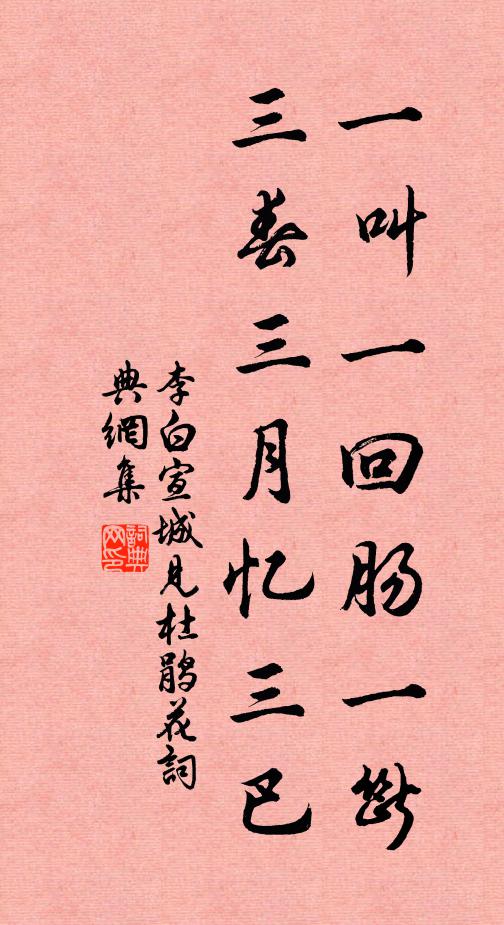 一叫一回肠一斷
三春三月忆三巴
李白宣城見杜鹃花詞
典網集
詞典网印